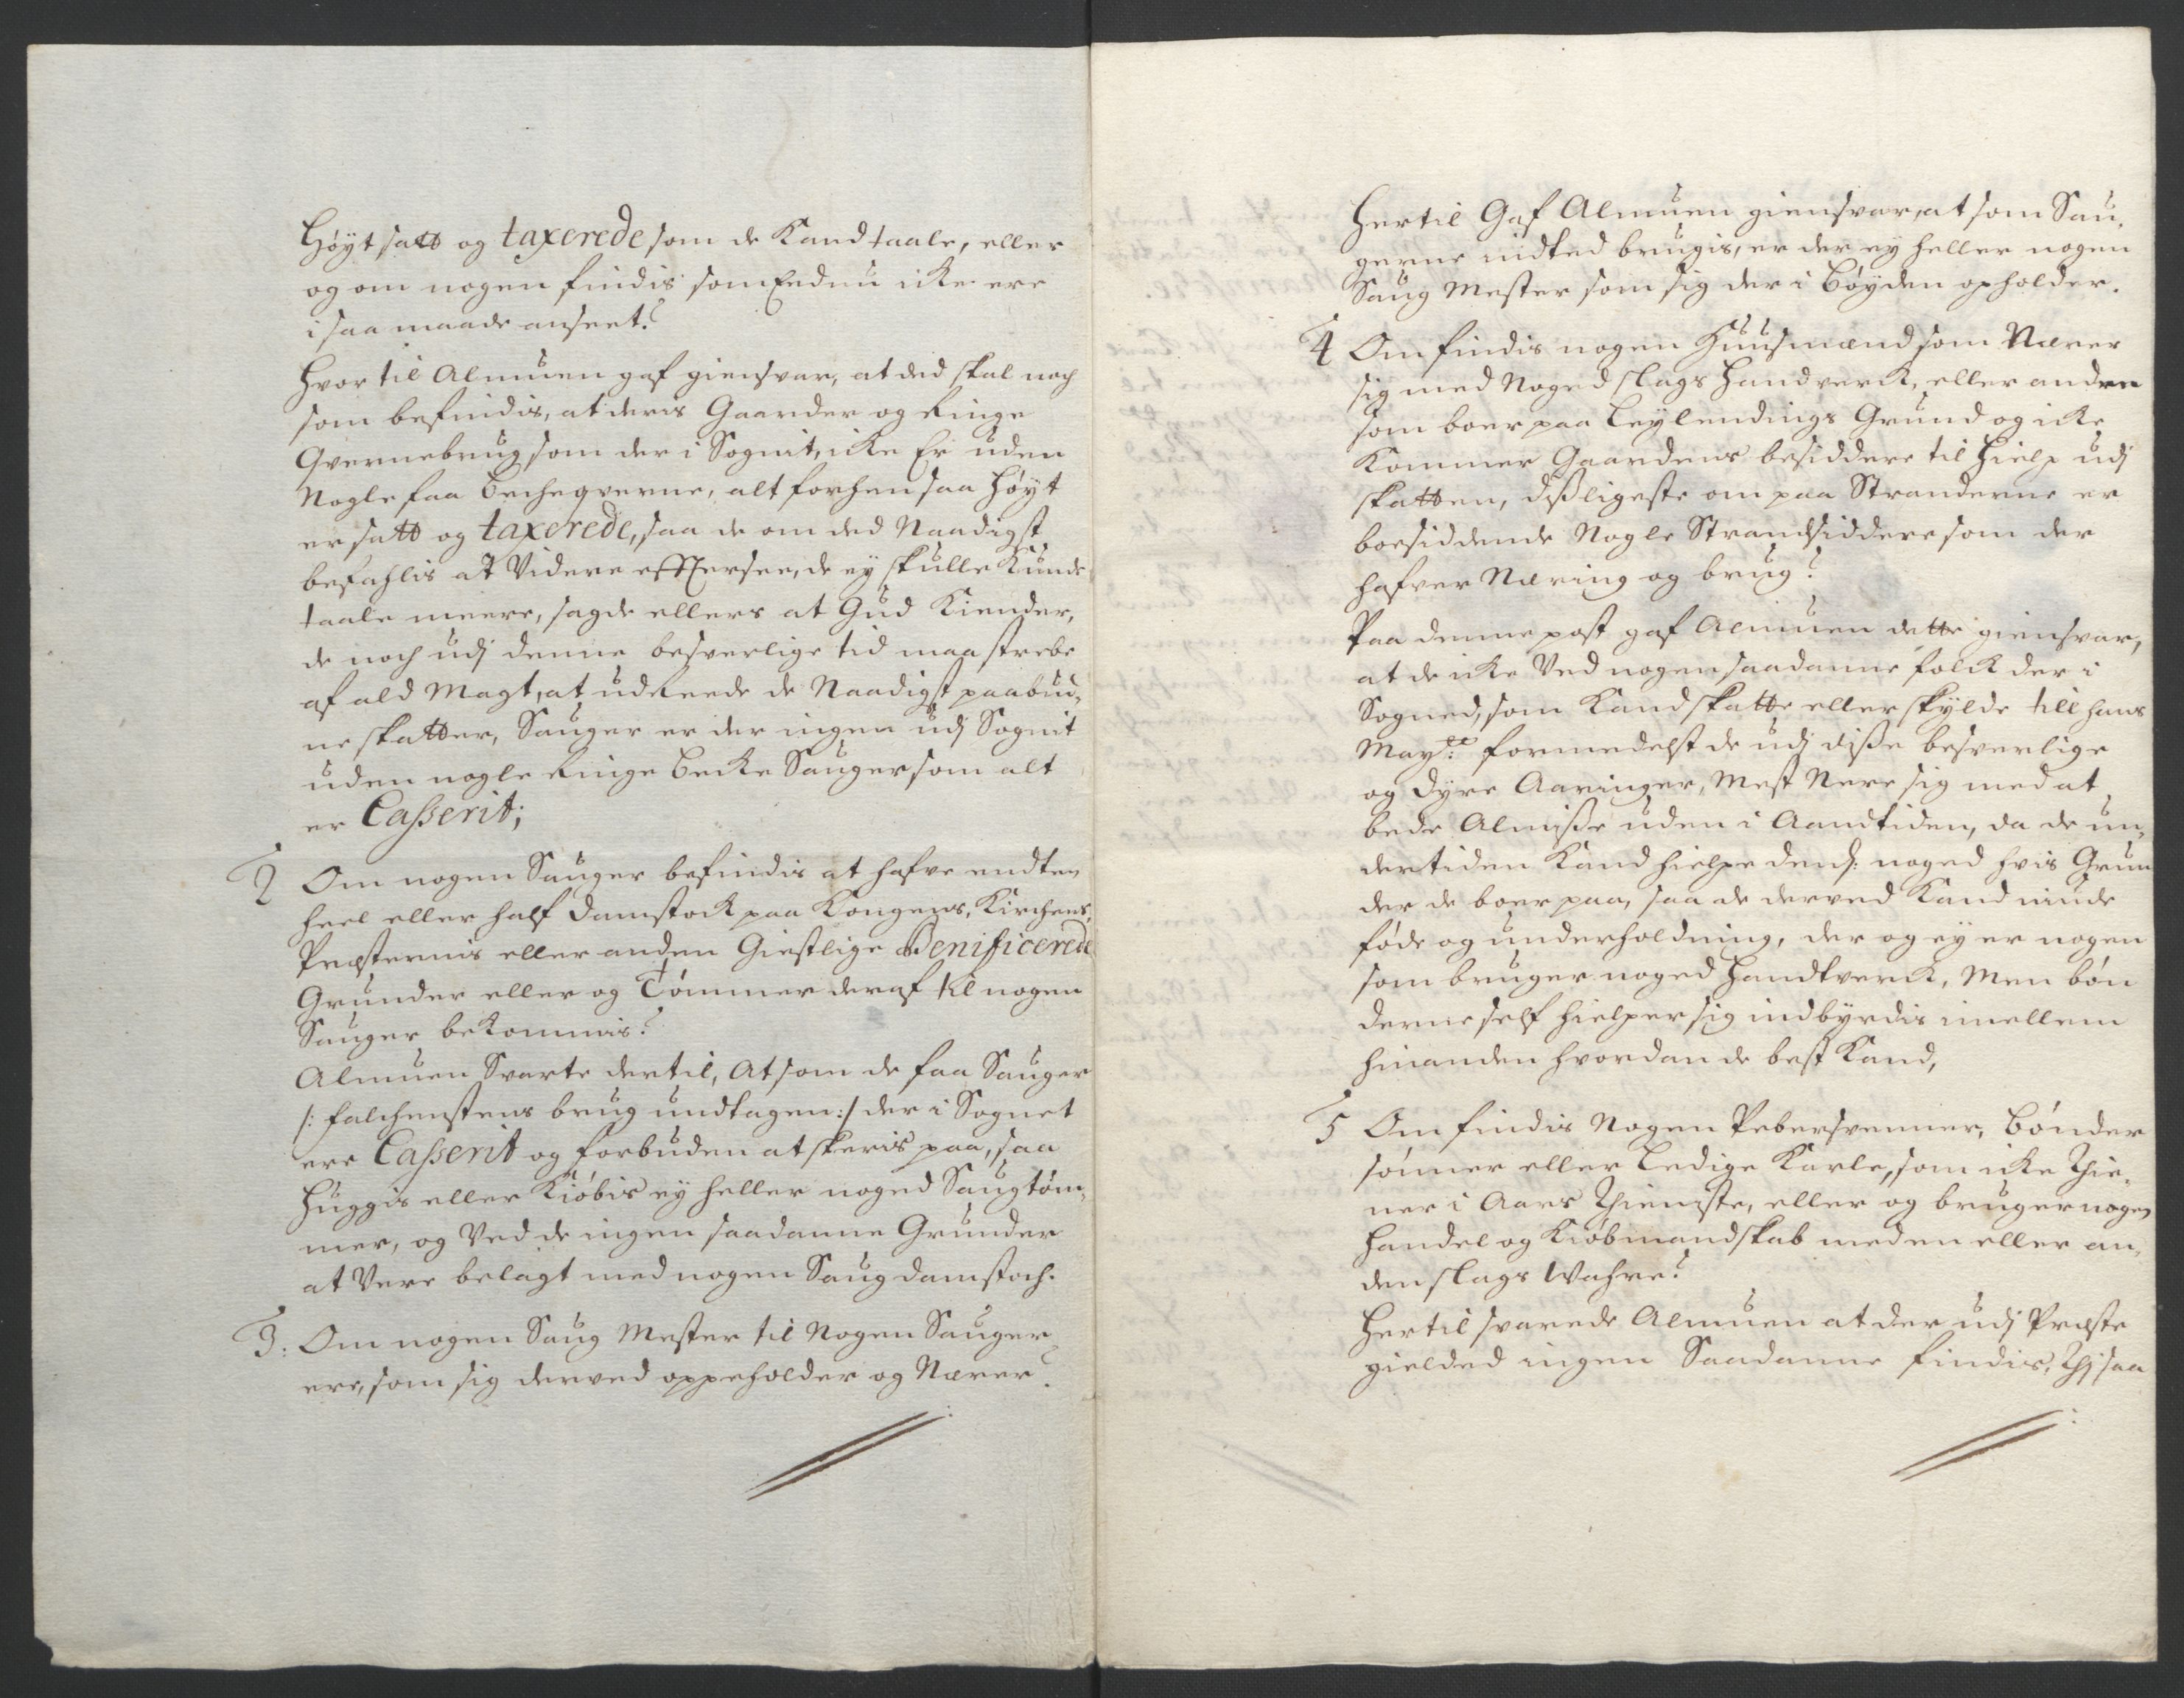 Høyt satt og taxerede som de Kand taale, eller
og om nogen findis som Endnu icke ere
i saa maade anseet?
Hvor til Almuen gaf giensvar, at ded skal noch
som befindis, at deris Gaarder og Ringe
Qvernebrug som der i Sognit, icke Er uden
Nogle faa Becheqverne, alt forhen saa Høyt
er satt og taxerede, saa de om ded Naadigst
befahlis at Videre efftersee, de ey skulle Kunde
taale meere, sagde ellers at Gud Kiender,
de noch udj denne besverlige tid maa strebe
af ald Magt, at udReede de Naadigst paabud-
ne skatter, Sauger er der ingen udj Sognit
uden nogle Ringe Becke Sauger som alt
er Casserit;
2 Om nogen Sauger befindis at hafve endten
heel eller half Damstock paa Kongens, Kirchens,
Præsternis eller anden Giestlige Benificerede
Grunder eller og Tømmer deraf til nogen
Sauger bekommis?
Almuen Svarte dertil, At som de faa Sauger
/: Falchenstens brug undtagen :/ der i Sognet
ere Casserit og forbuden at skeris paa, saa
Huggis eller Kiøbis ey heller noged Saugtøm-
mer, og Ved de ingen saadanne Grunder
at Vere belagt med nogen Saug damstoch.
3: Om nogen Saug Mester til Nogen Sauger
ere, som sig derved oppeholder og Nærer?
Hertil Gaf Almuen giensvar, at som Sau-
gerne indted brugis, er der ey heller nogen
Saug Mester som sig der i Bøyden opholder.
4 Om findis nogen Huusmænd som Nærer
sig med Noged slags Handverck, eller andre
som boer paa Leylendings Grund og icke
Kommer Gaardens besiddere til Hielp udj
skatten, dissligeste om paa Stranderne er
boesiddende Nogle Strandsiddere som der
hafver Næring og brug?
Paa denne post gaf Almuen dette giensvar,
at de icke Ved nogen saadanne folck der i
Sogned, som Kand skatte eller skylde till hans
Mayt: formedelst de udj disse besverlige
og dyre Aaringer, Mest Nere sig med at
bede Almisse uden i Aandtiden, da de un-
dertiden Kand hielpe dend: noged hvis Grun
der de boer paa, saa de derved Kand niude
føde og underholdning, der og ey er nogen
som bruger noged Handtverck, Men bøn
derne self hielper sig indbyrdis imellem
hinanden hvordan de best Kand,
5 Om findis Nogen Pebersvenner, Bønder
sønner eller Ledige Karle, som icke Thie-
ner i Aars Thieniste, eller og bruger nogen
Handel og Kiøbmandskab med en eller an-
den slags Wahre?
Hertil svarede Almuen at der udj Præste
gielded ingen Saadanne findis, Thj saa